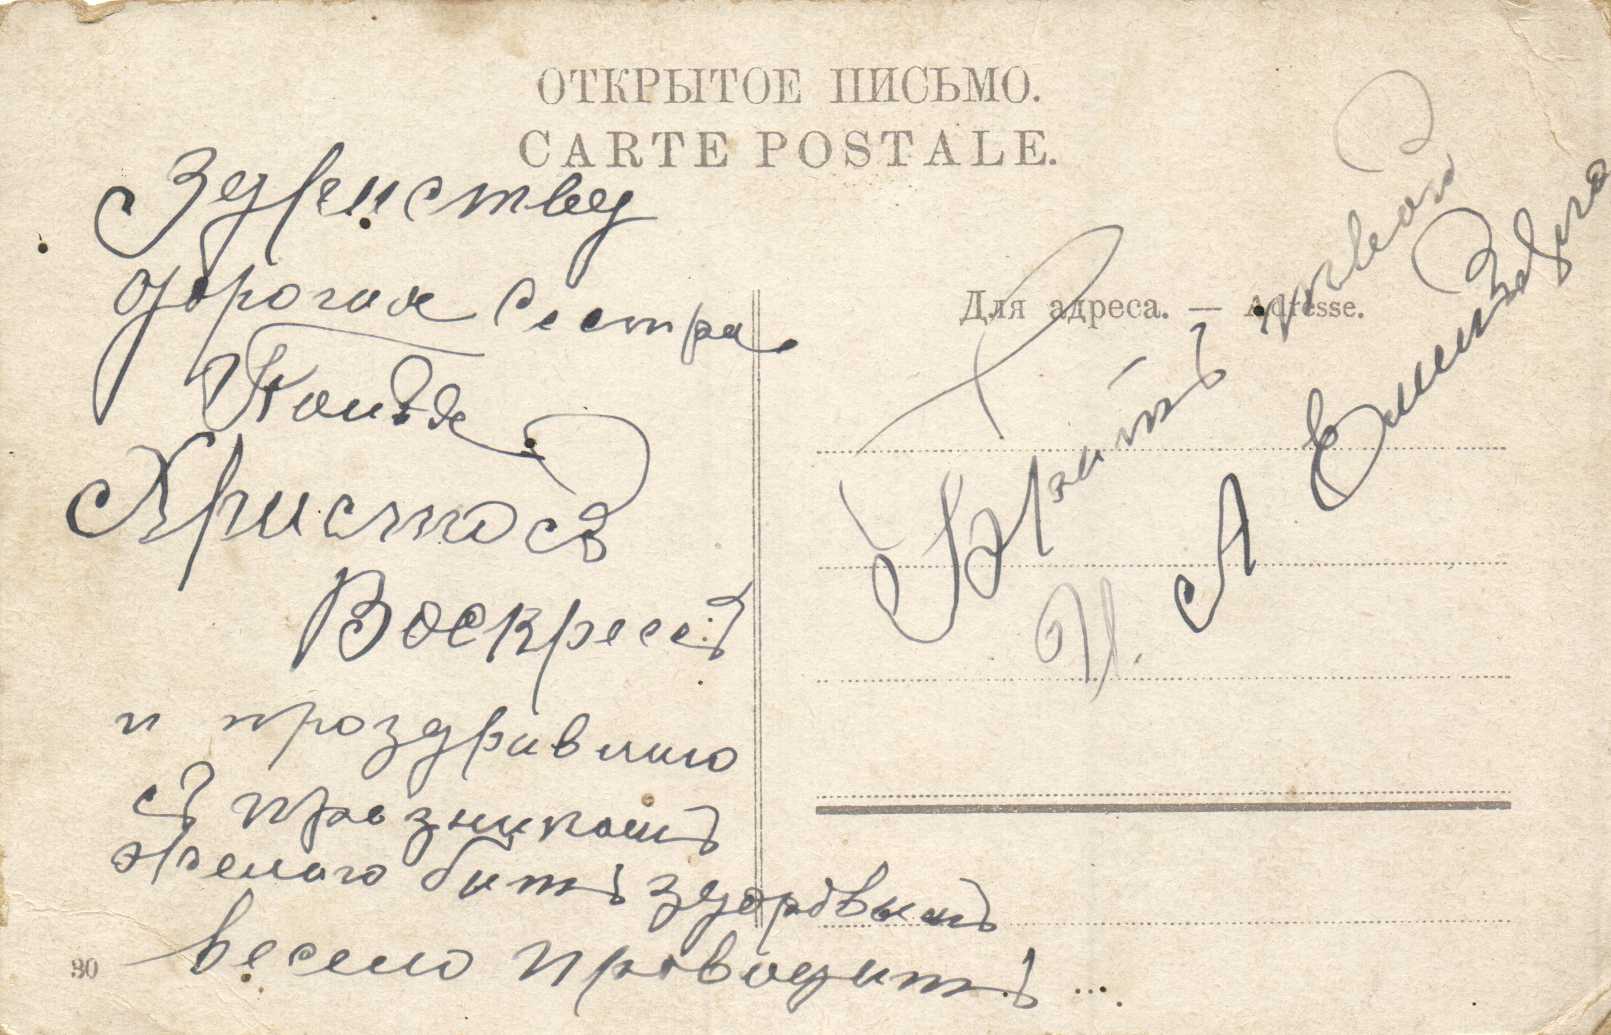 ОТКРЫТОЕ ПИСЬМО.
CARTE POSTALE.
Здриству
дорогая Сестра
Христосъ
Воскресъ
и проздравляю
съ празникомъ
желаю бить здоровымъ
весело проводитъ...
30
Для адреса. — Adresse.
Братъ твой
И. А